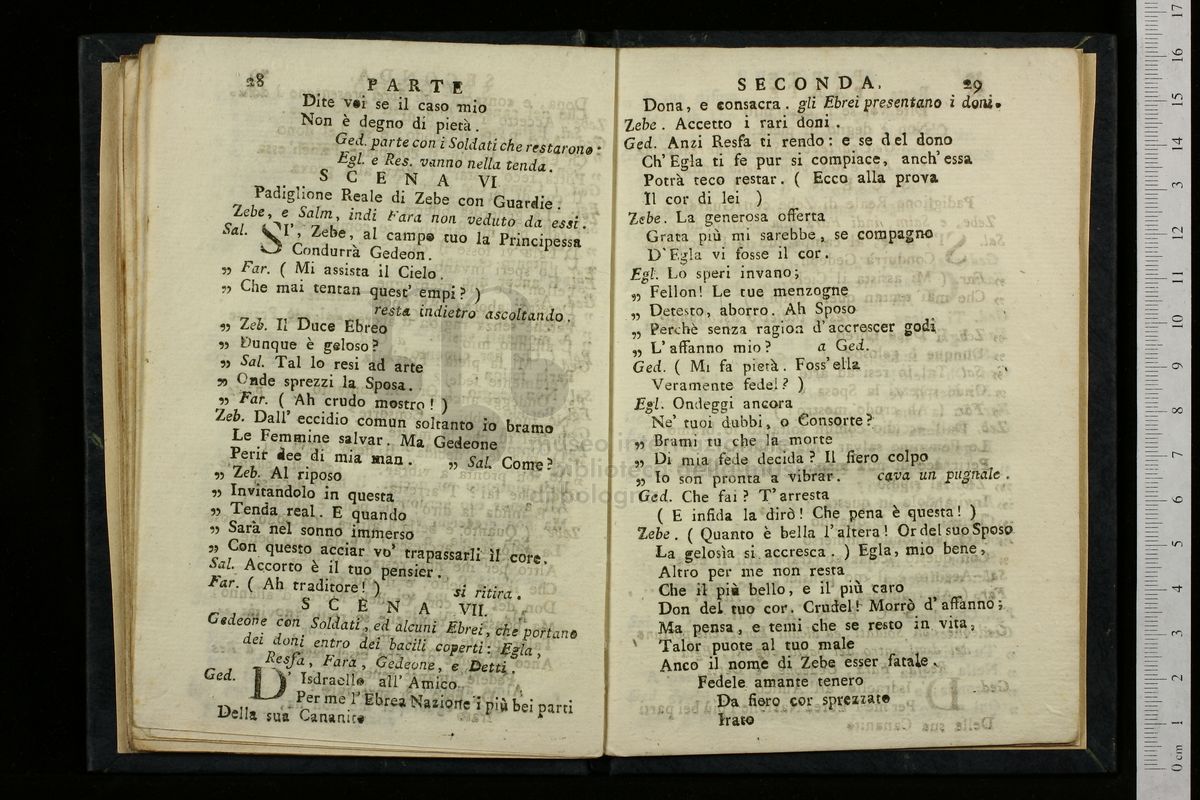 28
PARTE
Dite voi se il caso mio
Non è degno di pietà.
Ged. parte con i Soldati che restarono:
Egl. e Res. vanno nella tenda.
SCENA VI
Padiglione Reale di Zebe con Guardie.
Zebe, e Salm, indi Fara non veduto da essi.
Sal. SI', Zebe, al campo tuo la Principessa
Condurrà Gedeon.
„ Far. ( Mi assista il Cielo.
„ Che mai tentan quest' empi? )
resta indietro ascoltando.
„ Zeb. Il Duce Ebreo
„ Dunque è geloso?
„ Sal. Tal lo resi ad arte
„ Onde sprezzi la Sposa.
„ Far. ( Ah crudo mostro! )
Zeb. Dall' eccidio comun soltanto io bramo
Le Femmine salvar. Ma Gedeone
Perir dee di mia man. „ Sal. Come?
„ Zeb. Al riposo
„ Invitandolo in questa
„ Tenda real. E quando
„ Sarà nel sonno immerso
„ Con questo acciar vo' trapassarli il core.
Sal. Accorto è il tuo pensier.
Far. ( Ah traditore! ) si ritira.
SCENA VII.
Gedeone con Soldati, ed alcuni Ebrei, che portano
dei doni entro dei bacili coperti: Egla,
Resfa, Fara, Gedeone, e Detti.
Ged. D' Isdraello all' Amico
Per me l' Ebrea Nazione i più bei parti
Della sua Cananite
SECONDA.
29
Dona, e consacra. gli Ebrei presentano i doni.
Zebe. Accetto i rari doni.
Ged. Anzi Resfa ti rendo: e se del dono
Ch' Egla ti fe pur si compiace, anch' essa
Potrà teco restar. ( Ecco alla prova
Il cor di lei )
Zebe. La generosa offerta
Grata più mi sarebbe, se compagno
D' Egla vi fosse il cor.
Egl. Lo speri invano;
„ Fellon! Le tue menzogne
„ Detesto, aborro. Ah Sposo
„ Perchè senza ragion d' accrescer godi
„ L' affanno mio? a Ged.
Ged. ( Mi fa pietà. Foss' ella
Veramente fedel? )
Egl. Ondeggi ancora
Ne' tuoi dubbi, o Consorte?
„ Brami tu che la morte
„ Di mia fede decida? Il fiero colpo
„ Io son pronta a vibrar. cava un pugnale.
Ged. Che fai? T' arresta
( E infida la dirò! Che pena è questa! )
Zebe. ( Quanto è bella l' altera! Or del suo Sposo
La gelosìa si accresca. ) Egla, mio bene,
Altro per me non resta
Che il più bello, e il più caro
Don del tuo cor. Crudel! Morrò d' affanno;
Ma pensa, e temi che se resto in vita,
Talor puote al tuo male
Anco il nome di Zebe esser fatale.
Fedele amante tenero
Da fiero cor sprezzato
Irato